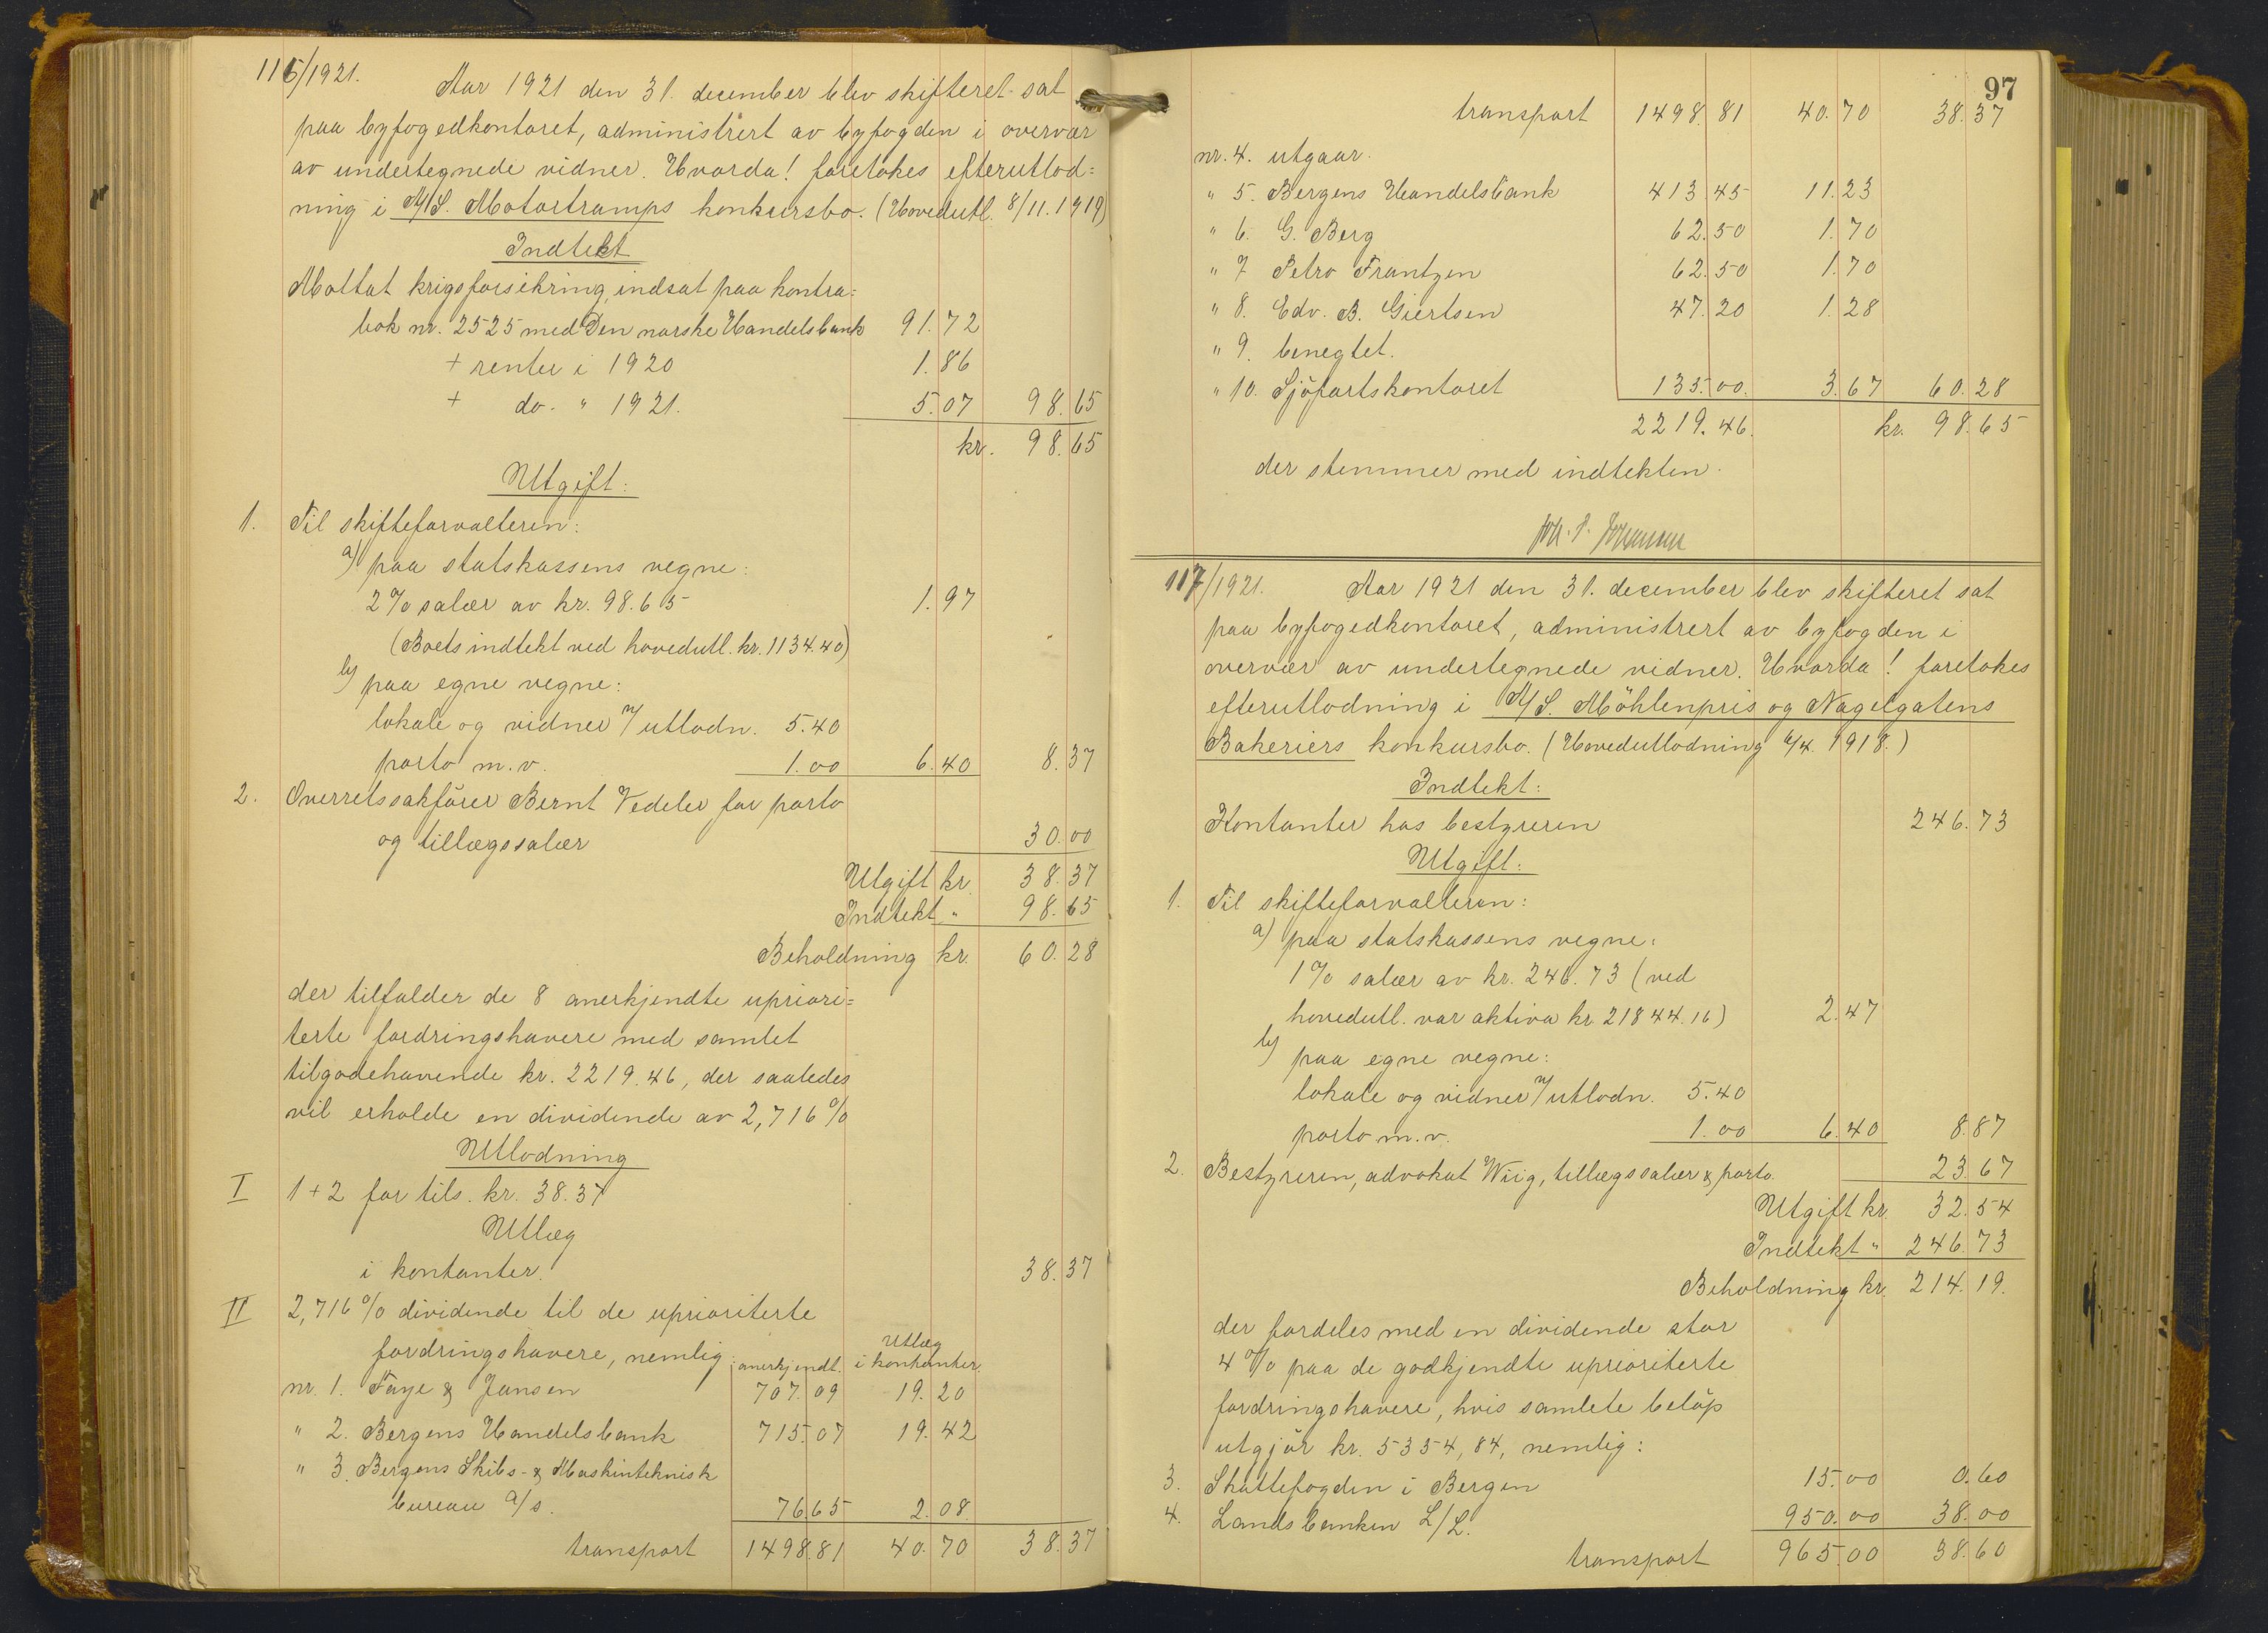 116/1921.
Aar 1921 den 31. december blev skifteret sat
paa byfogedkontoret, administrert av byfogden i overvær
av undertegnede vidner. Hvorda! foretokes efterutlod=
ning i A/S. Motortramps konkursbo. (Hovedutl. 8/11.1919)
Indtekt
Mottat krigsforsikring, indsat paa kontra=
bok nr. 2525 med Den norske Handelsbank 91.72
+ renter i 1920 1.86
+ do. " 1921. 5.07 98.65
kr. 98.65
Utgift:
1. Til skifteforvalteren:
a) paa statskassens vegne:
2% salær av kr. 98.65 1.97
(Boets indtekt ved hovedutl. kr. 1134.40)
b) paa egne vegne:
lokale og vidner v/ utlodn. 5.40
porto m.v. 1.00 6.40 8.37
2. Overretssakfører Bernt Vedeler for porto
og tillægssalær 30.00
Utgift kr. 38.37
Indtekt " 98.65
Beholdning kr. 60.28
der tilfalder de 8 anerkjendte upriori=
terte fordringshavere med samlet
tilgodehavende kr. 2219.46, der saaledes
vil erholde en dividende av 2,716%
Utlodning
I 1+2 for tils. kr. 38.37
Utlæg
i kontanter. 38.37
II 2,716% dividende til de uprioriterte
Utlæg
fordringshavere, nemlig: anerkjendt. i kontanter.
nr. 1. Faye & Jansen 707.09 19.20
" 2. Bergens Handelsbank 715.07 19.42
" 3. Bergens Skibs- & Maskinteknisk
bureau A/S. 76.65 2.08.
transport 1498.81 40.70 38.37
97
transport 1498.81 40.70 38.37
nr. 4. utgaar.
" 5. Bergens Handelsbank 413.45 11.23
" 6. G. Berg 62.50 1.70
" 7 Petro Frantzen 62.50 1.70
" 8. Edv. B. Giertsen 47.20 1.28
" 9. benegtet.
" 10. Sjöfartskontoret 135.00. 3.67 60.28
2219.46. kr. 98.65
der stemmer med indtekten.
117/1921. Aar 1921 den 31. december blev skifteret sat
paa byfogedkontoret, administrert av byfogden i
overvær av undertegnede vidner. Hvorda! foretokes
efterutlodning i A/S. Möhlenpris og Nagelgatens
Bakeriers konkursbo. (Hovedutlodning 6/4. 1918.)
Indtekt:
Kontanter hos bestyreren 246.73
Utgift:
1. Til skifteforvalteren:
a) paa statskassens vegne:
1% salær av kr. 246.73 (ved
hovedutl. var aktiva kr. 21844.16) 2.47
b) paa egne vegne:
lokale og vidner v/ utlodn. 5.40
porto m.v. 1.00 6.40 8.87
2. Bestyreren, advokat Wiig, tillægssalær & porto. 23.67
Utgift kr. 32.54
Indtekt " 246.73
Beholdning kr. 214.19.
der fordeles med en dividende stor
4% paa de godkjendte uprioriterte
fordringshavere, hvis samlete beløp
utgjör kr. 5354,84, nemlig:
3. Skattefogden i Bergen 15.00 0.60
4. Landsbanken L/L. 950.00 38.00
transport 965.00 38.60